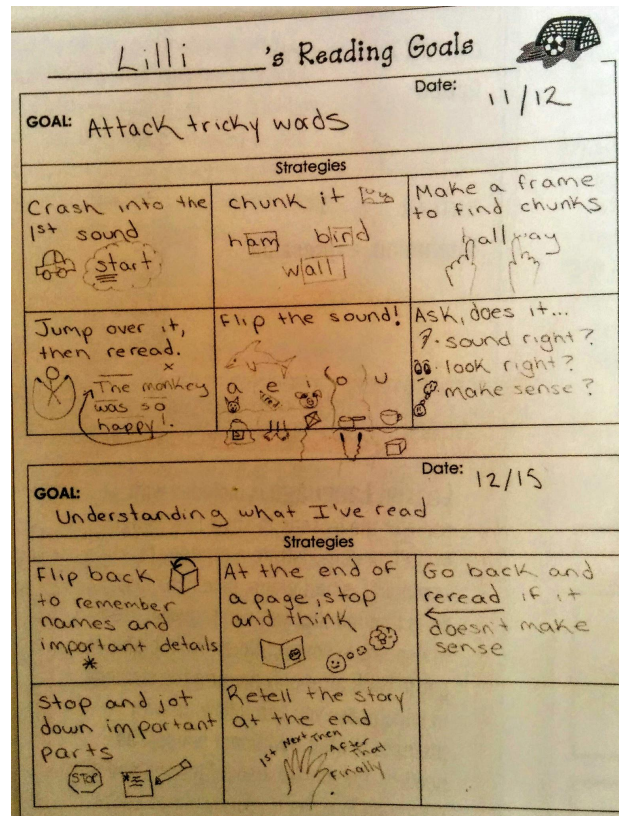 Lilli's Reading Goals
Date: 11/12
GOAL: Attack tricky words
Strategies
Crash into the
1st sound
start
chunk it
ham bird
wall
Make a frame
to find chunks
hallway
Jump over it,
then reread.
The monkey
was so
happy!
Flip the sound!
a e i o u
Ask, does it...
sound right?
look right?
make sense?
Date: 12/15
GOAL:
Understanding what I've read
Strategies
Flip back
to remember
names and
important details
*
At the end of
a page, stop
and think
Go back and
reread if it
doesn't make
sense
Stop and jot
down important
parts
STOP
Retell the story
at the end
1st Next Then After That
Finally